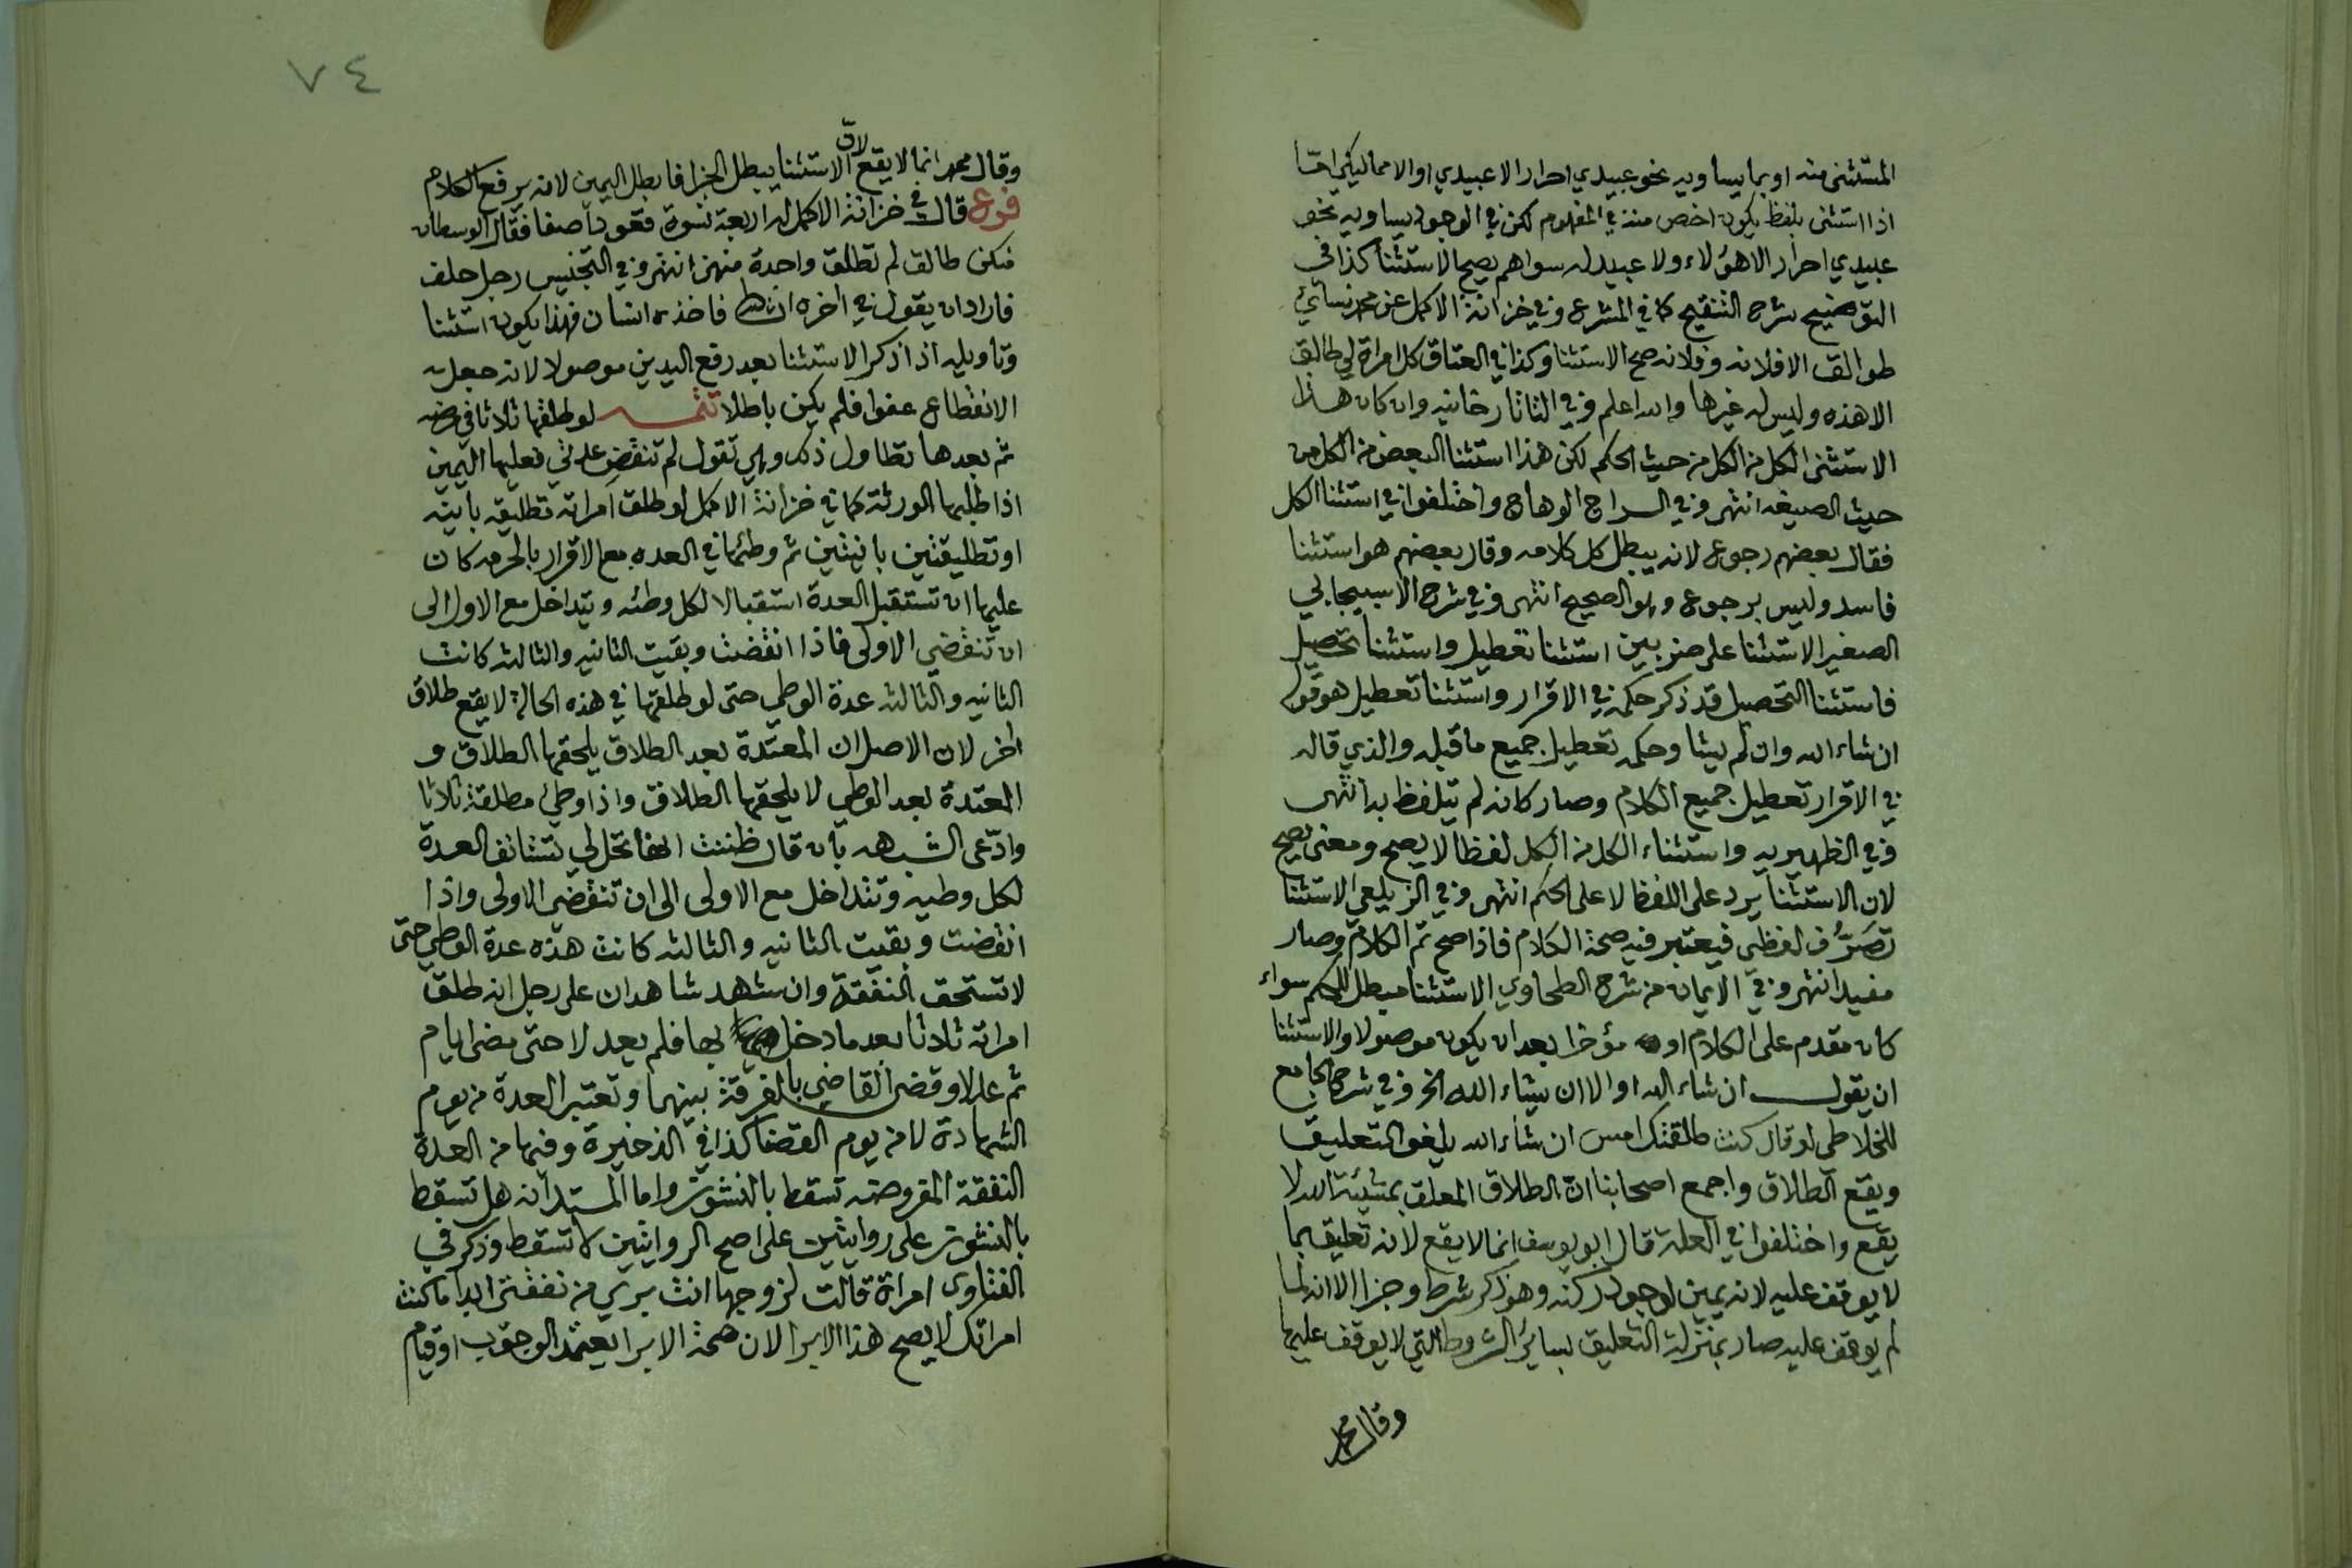 المستثنى منه او بما يساويه نحو عبيدي احرار الا عبيدي او الا مماليكي اما
اذا استثنى بلفظ يكون اخص منه في المفهوم لكن في الوجود يساويه نحو
عبيدي احرار الا هؤلاء ولا عبيد له سواهم يصح الاستثنا كذا في
التوضيح شرح التنقيح كما في المشرع وفي خزانة الاكمل عن محمد نسائي
طوالق الا فلانه وفلانه صح الاستثنا وكذا في العتاق كل امراة لي طالق
الا هذه وليس له غيرها والله اعلم وفي التاتارخانيه وان كان هذا
الاستثنى الكل من الكل من حيث الحكم لكن هذا استثنا البعض من الكل من
حيث الصيغه انتهى وفي السراج الوهاج واختلفوا في استثنا الكل
فقال بعضهم رجوع لانه يبطل كل كلامه وقال بعضهم هو استثنا
فاسد وليس برجوع وهو الصحيح انتهى وفي شرح الاسبيجابي
الصغير الاستثنا على ضربين استثنا تعطيل واستثنا تحصيل
فاستثنا التحصيل قد ذكر حكمه في الاقرار واستثنا تعطيل هو قول
ان شاء الله وان لم يشا وحكمه تعطيل جميع ما قبله والذي قاله
في الاقرار تعطيل جميع الكلام وصار كانه لم يتلفظ به انتهى
وفي الظهيريه واستثناء الكل من الكل لفظا لا يصح ومعنى يصح
لان الاستثنا يرد على اللفظ لا على الحكم انتهى وفي الزيلعي الاستثنا
تصرف لفظي فيعتبر فيه صحة الكلام فاذا صح تم الكلام وصار
مفيدا انتهى وفي الايمان من شرح الطحاوي الاستثنا مبطل للحكم سواء
كان مقدم على الكلام او مؤخرا بعد ان يكون موصولا والاستثنا
ان يقول ان شاء الله او الا ان يشاء الله الخ وفي شرح الجامع
للخلاطي لو قال كنت طلقتك امس ان شاء الله يلغو التعليق
ويقع الطلاق واجمع اصحابنا ان الطلاق المعلق بمشيئة الله لا
يقع واختلفوا في العلة قال ابو يوسف انما لا يقع لانه تعليق بما
لا يوقف عليه لانه يمين لوجود ركنه وهو ذكر شرط وجزا الا انه لما
لم يوقف عليه صار بمنزلة التعليق بسائر الشروط التي لا يوقف عليها
وقال محمد
٧٤
لان
وقال محمد انما لا يقع الاستثنا يبطل الجزا فابطل اليمين لانه يرفع الكلام
فروع قال في خزانة الاكمل له اربعة نسوة قعود صفا فقال الوسطان
منكن طالق لم تطلق واحدة منهن انتهى وفي التجنيس رجل حلف
فاراد ان يقول في اخره ان شا الله فاخذ فمه انسان فهذا يكون استثنا
وتاويله اذا ذكر الاستثنا بعد رفع اليدين موصولا لانه جعل
الانقطاع عفوا فلم يكن باطلا تتمه لو طلقها ثلاثا في مرضه
ثم بعدها تطاول ذلك وهي تقول لم تنقض عدتي فعليها اليمين
اذا طلبها الورثة كما في خزانة الاكمل لو طلق امراته تطليقه باينه
او تطليقتين باينتين ثم وطئها في العده مع الاقرار بالحرمه كان
عليها ان تستقبل العدة استقبالا لكل وطئه ويتداخل مع الاول الى
ان تنقضي الاولى فاذا انقضت وبقيت الثانيه والثالثه كانت
الثانيه والثالثه عدة الوطي حتى لو طلقها في هذه الحالة لا يقع طلاق
اخر لان الاصل ان المعتدة بعد الطلاق يلحقها الطلاق و
المعتدة بعد الوطي لا يلحقها الطلاق واذا وطي مطلقة ثلاثا
وادعى الشبهه بان قال ظننت انها تحل لي تستانف العدة
لكل وطيه وتتداخل مع الاولى الى ان تنقضي الاولى واذا
انقضت وبقيت الثانيه والثالثه كانت هذه عدة الوطي حتى
لا تستحق النفقة وان شهد شاهدان على رجل انه طلق
امراته ثلاثا بعد ما دخل بها فلم يعدلا حتى مضى ايام
ثم عدلا وقضى القاضي بالفرقة بينهما وتعتبر العدة من يوم
الشهادة لا من يوم القضا كذا في الذخيرة وفيها من العدة
النفقة المفروضه تسقط بالنشوز واما المستدانه هل تسقط
بالنشوز على روايتين على اصح الروايتين لا تسقط وذكر في
الفتاوى امراة قالت لزوجها انت بري من نفقتي ابدا ما كنت
امراتك لا يصح هذا الابرا لان صحة الابرا يعتمد الوجوب او قيام